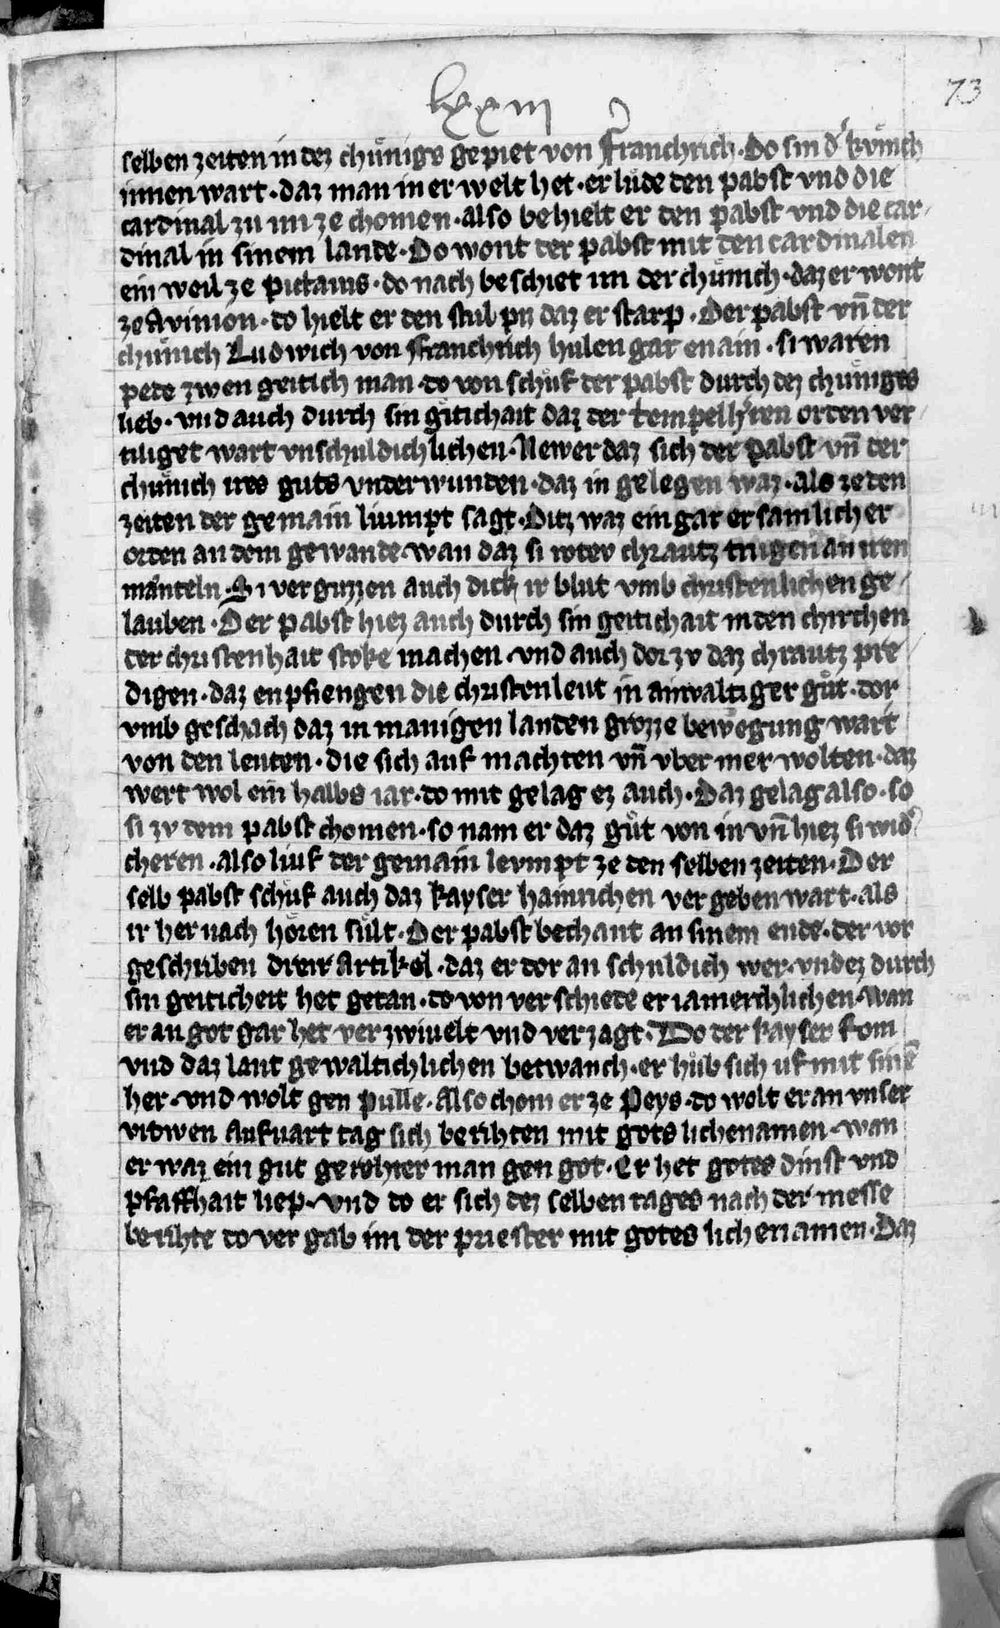 lxxiii
73
selben zeiten in dez chuͤnigs gepiet von Franchrich · Do sin dˀ kuͤnich
innen wart · daz man in er welt het · er luͤde den pabst vnd die
cardinal zu im ze chomen · also behielt er den pabst vnd die car/
dinal in sinem lande · Do wont der pabst mit den cardinalen
ein weil ze Pictains · do nach beschiet im der chuͤnich · daz er wont
ze Avinion · do hielt er den stul pis daz er starp · Der pabst vn̄ der
chuͤnich Ludwich von Franchrich hulen gar en ain · si waren
pede zwen geitich man · do von schuf der pabst durch dez chuniges
lieb · vnd auch durch sin gitichait daz der tempelhˀren orden ver/
tiliget wart vnschuldichlichen · Newer daz sich der Pabst vn̄ der
chuͤnich ires guts vnderwunden · daz in gelegen waz · als ze den
zeiten der gemain liumpt sagt · Ditz waz ein gar ersamlicher
orden an dem gewande · wan daz si rotev chrautz trugen an iren
maͤnteln · Si verguzzen auch dick ir blut vmb christenlichen ge/
lauben · Der pabst hiez auch durch sin geitichait in den chirchen
der christenhait stoke machen · vnd auch dor zv daz chrautz pre/
digen · daz enpfiengen die christenleut in ainvaltiger guͤt · dor
vmb geschach daz in manigen landen grozze bewegung wart
von den leuten · die sich auf machten vn̄ vber mer wolten · daz
wert wol ein halbs iar · do mit gelag ez auch · Daz gelag also · so
si zv dem pabst chomen · so nam er daz guͤt von in vn̄ hiez si widˀ
cheren · also liuf der gemain levmpt ze den selben zeiten · Der
selb pabst schuf auch daz kayser hainrichen vergeben wart · als
ir her nach hoͤren suͤlt · Der pabst bechant an sinem ende · der vor
geschriben drier Artikel · daz er dor an schuldich wer · vnd ez durch
sin geiticheit het getan · do von verschiede er iamerchlichen · Wan
er an got gar het verzwiuelt vnd verzagt · Do der kayser kom
vnd daz lant gewaltichlichen betwanch · er huͤb sich uf mit sinē
her · vnd wolt gen Pulle · Also chom er ze Peys · do wolt er an vnser
vrowen Aufuart tag sich berihten mit gots lichenamen · wan
er waz ein gut gerehter man gen got · Er het gotes dinst vnd
pfaffhait liep · vnd do er sich dez selben tages nach der messe
berihte do vergab im der priester mit gotes lichenamen · Daz